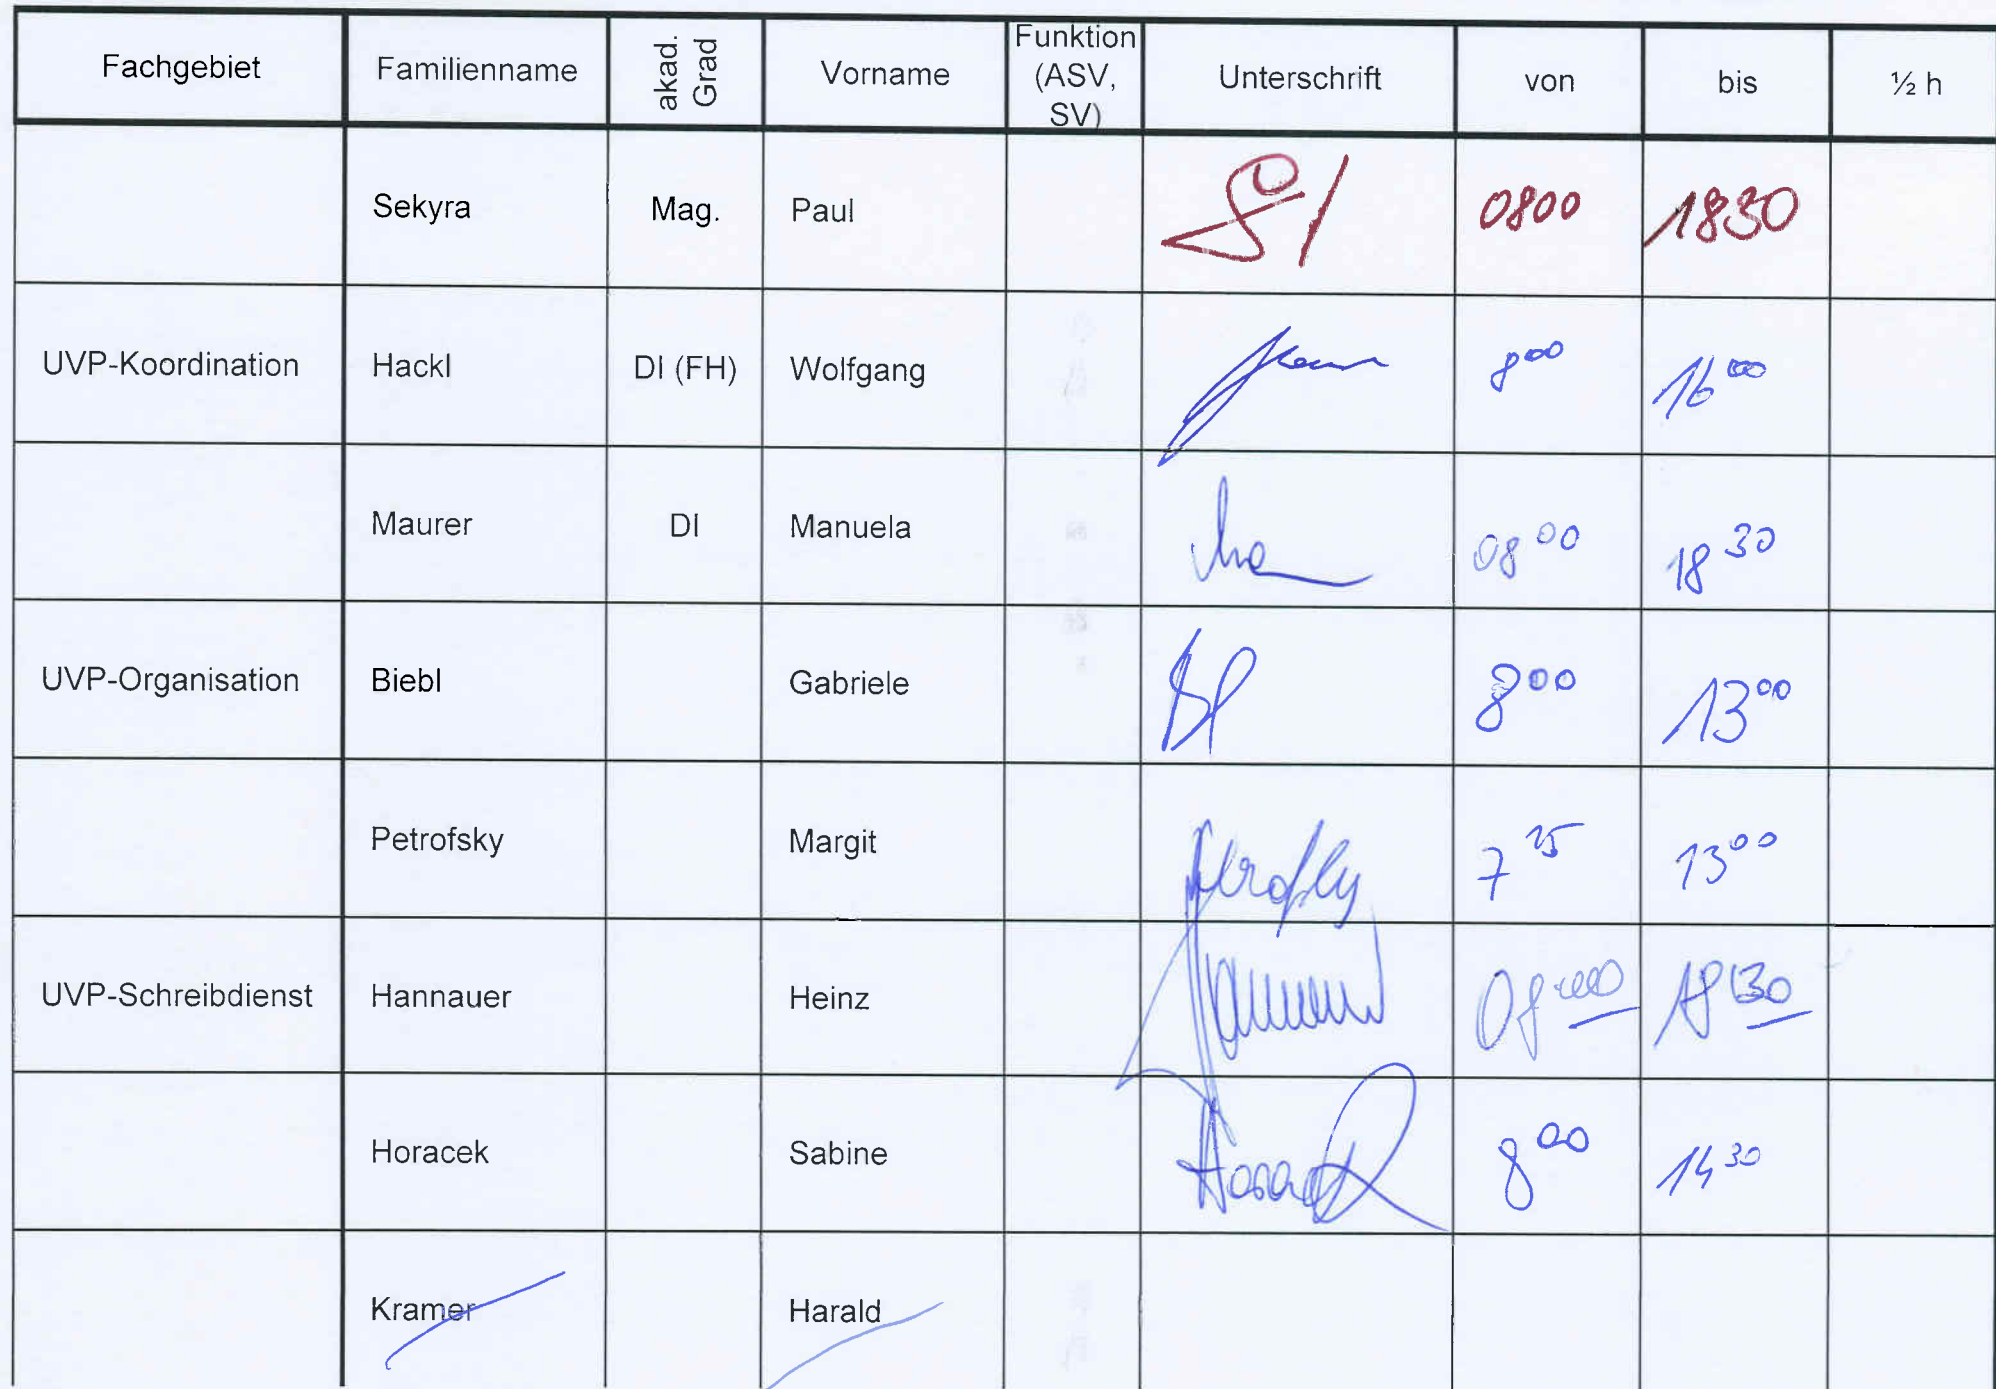 Fachgebiet Familienname akad. Grad Vorname Funktion (ASV, SV) Unterschrift von bis ½ h
Sekyra Mag. Paul 0800 1830
UVP-Koordination Hackl DI (FH) Wolfgang 8 00 16 00
Maurer DI Manuela 08 00 18 30
UVP-Organisation Biebl Gabriele 8 00 13 00
Petrofsky Margit 13 00
UVP-Schreibdienst Hannauer Heinz 18 30
Horacek Sabine Horacek 8 00 14 30
Kramer Harald